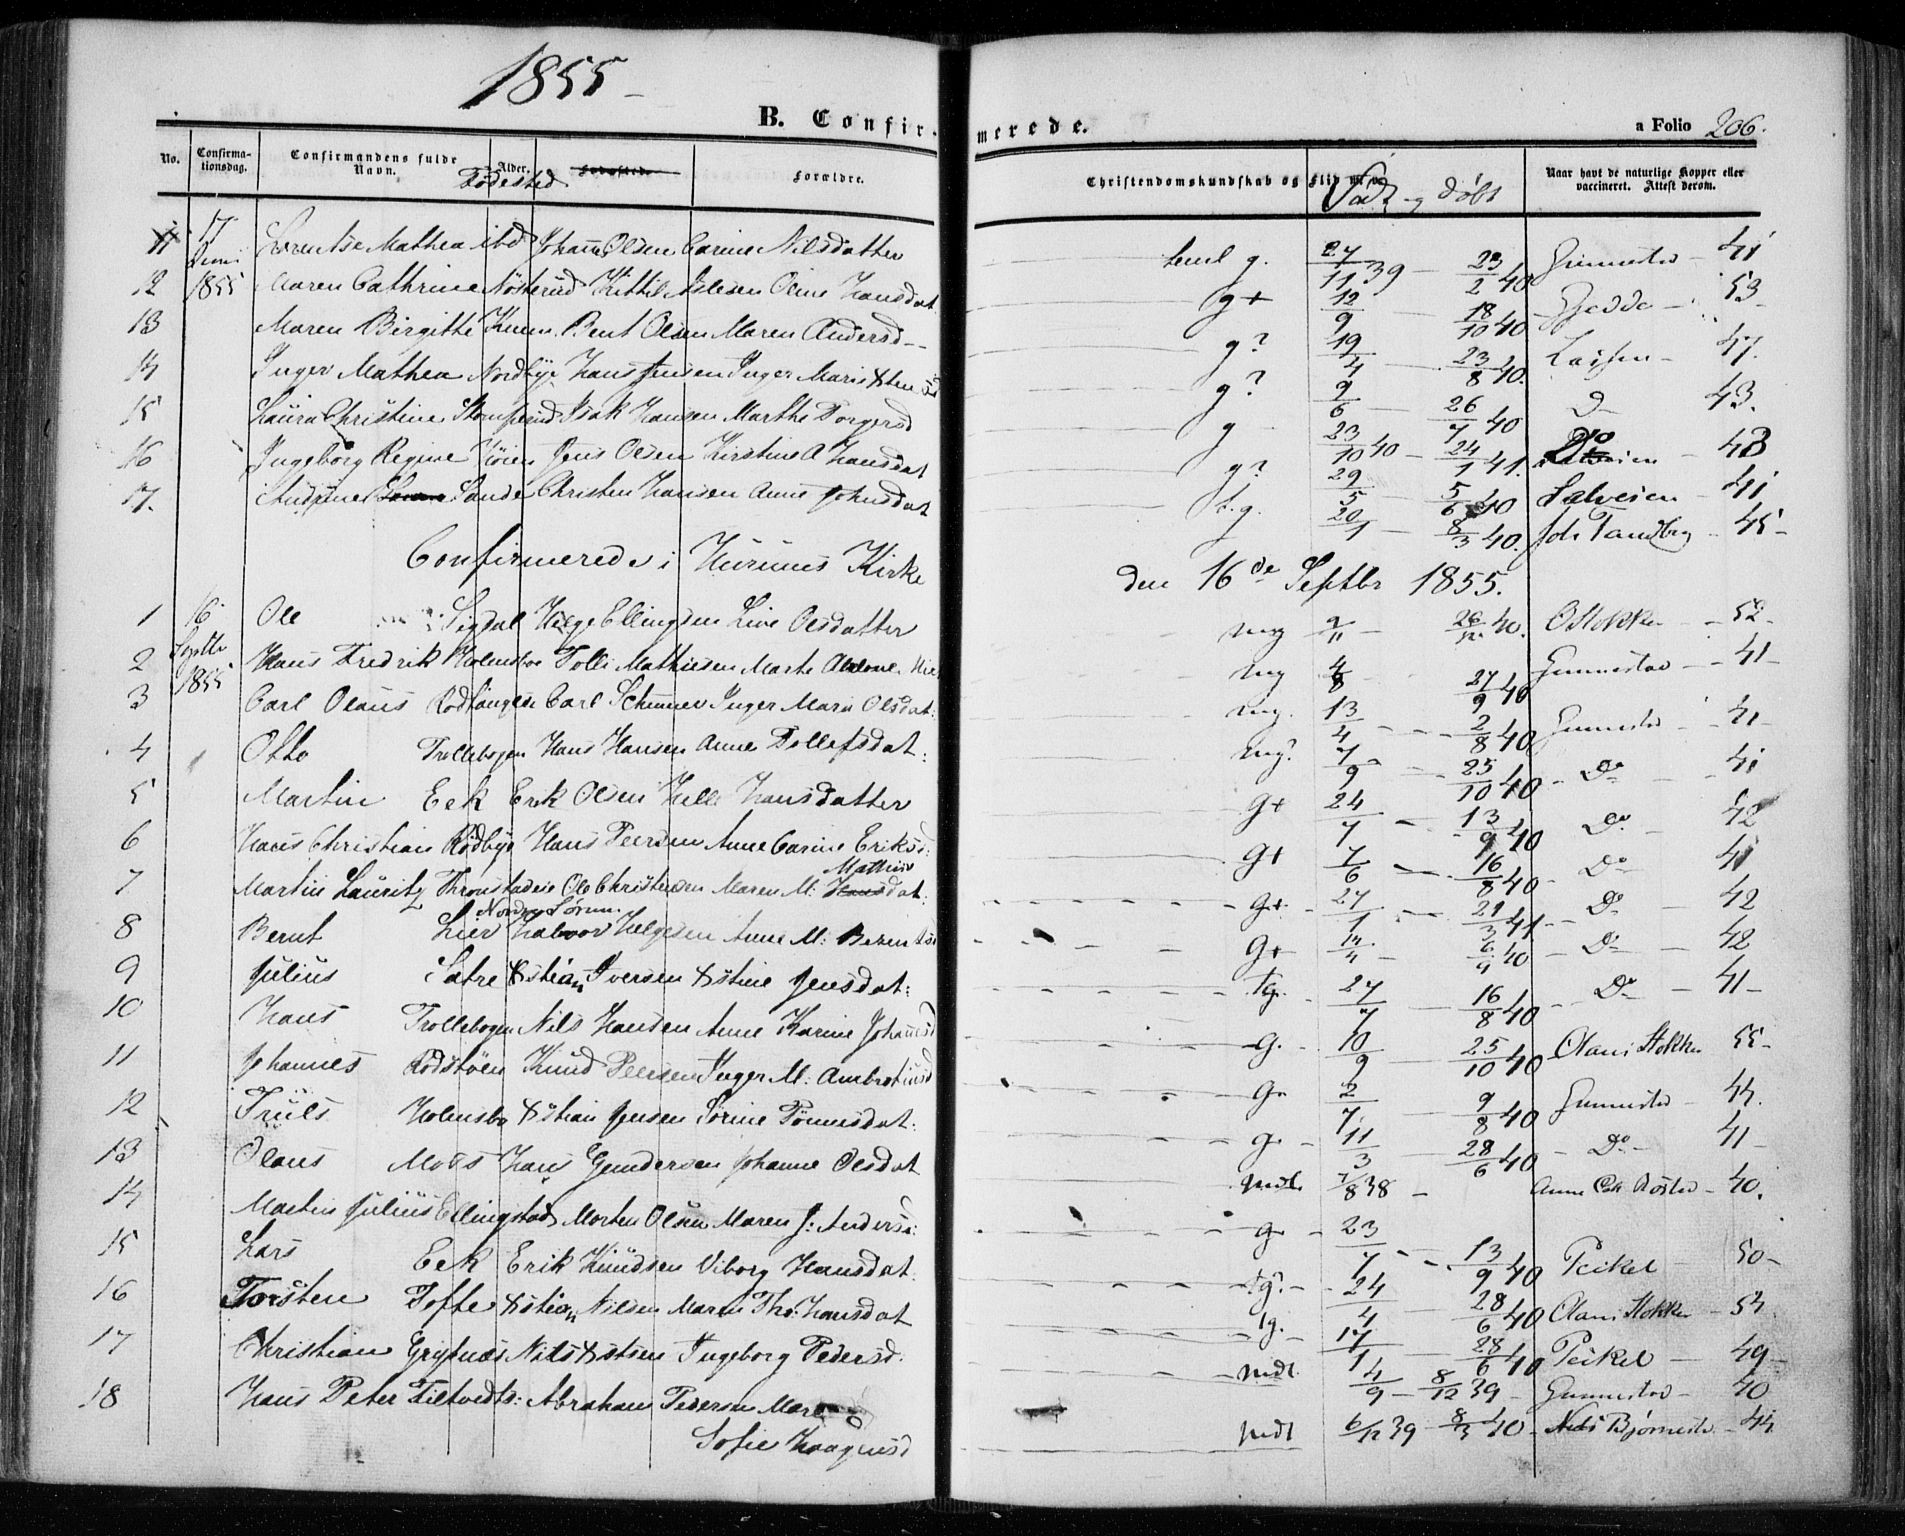 1855
B. Confirmerede.
a Folio 206.
No. Confirmationsdag. Confirmandens fulde Navn. Alder. Fødested Forældre. Christendomskundskab og Flid m. v. Født og døbt Naar havt de naturlige Kopper eller vaccineret. Attest derom.
11 17 Juni 1855 Lorentse Mathea ibd Johan Olsen Carine Nilsdatter temel g. 27/11 39 – 23/2 40 Gunnestad – 41
12 Maren Cathrine Nösterud Kittil Oline Hansdat g+ 12/9 – 18/10 40 Gjedde – 53
13 Maren Birgitte Bent Olsen Maren Andersd g? 19/4 – 23/8 40. – 47.
14 Inger Mathea Nordbÿe Hans Jensen Inger Marie g? 9/6 – 26/7 40 D – 43.
15 Laura Christine Isak Hansen Marthe Torgersd g 23/10 40 – 24/1 41. Do – 43
16 Ingeborg Regine Jens Olsen Kirstine A Hansdat g? 29/5 – 5/6 40 Salvesen – 41
17. Sande Christen Hansen Anne Johnsdat t.g. 20/1 – 8/3 40. Joh Tandberg – 45 –
Confirmerede i Hurums Kirke den 16de Septbr 1855.
1 16 Septbr 1855 Ole Sigdal Helge Ellingsen Live Olsdatter mg 9/11 – 26/12 40. O Stokke – 52 –
2 Hans Fredrik Holmsbo Tolli Mathiesen Marte mg 4/8 – 27/9 40 Gunnestad – 41 –
3 Carl Olaus Rödtangen Carl Inger Maria Olsdat: mg. 13/4 – 2/8 40 Gunnestd – 41 –
4 Otto Trollebogen Hans Hansen Anne Tollefsdat: mg? 7/9 – 25/10 40 – Do – 41
5 Martin Eek Erik Olsen Helle Hansdatter g+ 24/7 – 13/9 40 Do – 42
6 Hans Christian Rödbÿe Hans Peersen Anne Carine Eriksd: g+ 7/6 – 16/8 40 Do – 41
7 Martin Lauritz Thronstadeie Ole Christensen Maren M: Mathisdat: g+ 27/1 – 21/3 41 – Do – 42
8 Bernt Nordre Sörum Lier Halvoor Helgesen Anne M: g+ 14/11 – 6/9 40 – Do – 42
9 Julius Sætre Xstian Iversen Xstine Jensdat: Tg. 27/7 – 16/8 40 – Do – 41 –
10 Hans Trollebogen Nils Hansen Anne Karine Johansd g. 10/9 – 25/10 40 Olaus Stokke 55 –
11 Johannes Rödstöen Knud Peersen Inger M: Ambrotiusd g. 2/7 – 9/8 40 Gunnestd – 44.
12 Truls Holmsbo Xstian Jensen Sörine Tönnesdat: g. 11/3 – 28/6 40 – Do – 41 –
13 Olaus Moss Hans Gundersen Johanne Olsdat mdl. 7/8 38 – Anne Cat – 40.
14 Martin Julius Ellingstad Morten Olsen Maren J: Andersd: g 23/7 – 13/9 40 Peikel – 50 –
15 Lars Eek Erik Knudsen Viborg Hansdat. tg? 24/4 – 28/6 40 Olaus Stokke – 54.
16 Torsten Tofte Xstian Nilsen Maren Th: Hansdat Tg. 17/1 – 28/6 40 Peikel – 49 –
17 Christian Grytnes Nils Xstsen Ingeborg Pedersd. mdl. 4/9 – 8/12 39 – Gunnestad – 40
18 Hans Peter Abraham Pedersen Mar Sofie Haagensd mdl 6/12 39 – 8/3 40 – Nils Bjørnestd – 44